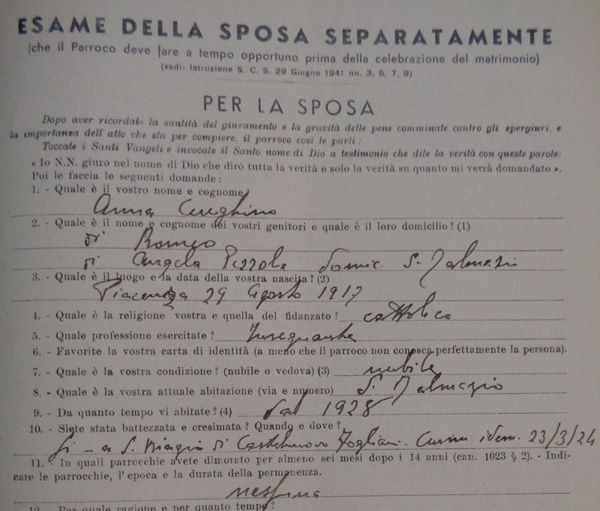 ESAME DELLA SPOSA SEPARATAMENTE
(che il Parroco deve fare a tempo opportuno prima della celebrazione del matrimonio)
(vedi: Istruzione S. C. S. 29 Giugno 1941 nn. 3, 5, 7, 9)
PER LA SPOSA
Dopo aver ricordato la santità del giuramento e la gravità delle pene comminate contro gli spergiuri, e
la importanza dell'atto che sta per compiere, il parroco così le parli:
Toccate i Santi Vangeli e invocate il Santo nome di Dio a testimonio che dite la verità con queste parole:
« Io N.N. giuro nel nome di Dio che dirò tutta la verità e solo la verità su quanto mi verrà domandato ».
Poi le faccia le seguenti domande:
1. - Quale è il vostro nome e cognome
Anna Cereghino
2. - Quale è il nome e cognome dei vostri genitori e quale è il loro domicilio? (1)
di Romeo
di Angela Pezzola domic. S. Dalmazio
3. - Quale è il luogo e la data della vostra nascita? (2)
Piacenza 29 Agosto 1917
4. - Quale è la religione vostra e quella del fidanzato? cattolica
5. - Quale professione esercitate? Insegnante
6. - Favorite la vostra carta di identità (a meno che il parroco non conosca perfettamente la persona).
7. - Quale è la vostra condizione? (nubile o vedova) (3) nubile
8. - Quale è la vostra attuale abitazione (via e numero) S. Dalmazio
9. - Da quanto tempo vi abitate? (4) dal 1928
10. - Siete stata battezzata e cresimata? Quando e dove?
Si - a S. Biagio di Castelnuovo Fogliani. Cresim. idem. 23/3/24
11. - In quali parrocchie avete dimorato per almeno sei mesi dopo i 14 anni (can. 1023 § 2). - Indi-
care le parrocchie, l'epoca e la durata della permanenza.
nessuna
12. Per quale ragione e per quanto tempo?